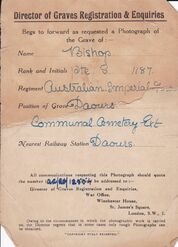 Director of Graves Registration & Enquiries
Begs to forward as requested a Photograph of
the Grave of :—
Name Bishop
Rank and Initials Pte S 1187.
Regiment Australian Imperial
Position of Grave Daours
Communal Cemetery Ext
Nearest Railway Station Daours.
All communications respecting this Photograph should quote
the number and be addressed to:—
Director of Graves Registration and Enquiries,
War Office,
Winchester House,
St. James's Square,
London, S.W. 1.
Owing to the circumstances in which the photographic work is carried on
the Director regrets that in some cases only rough Photographs can be
obtained.
"COPYRIGHT FULLY RESERVED."